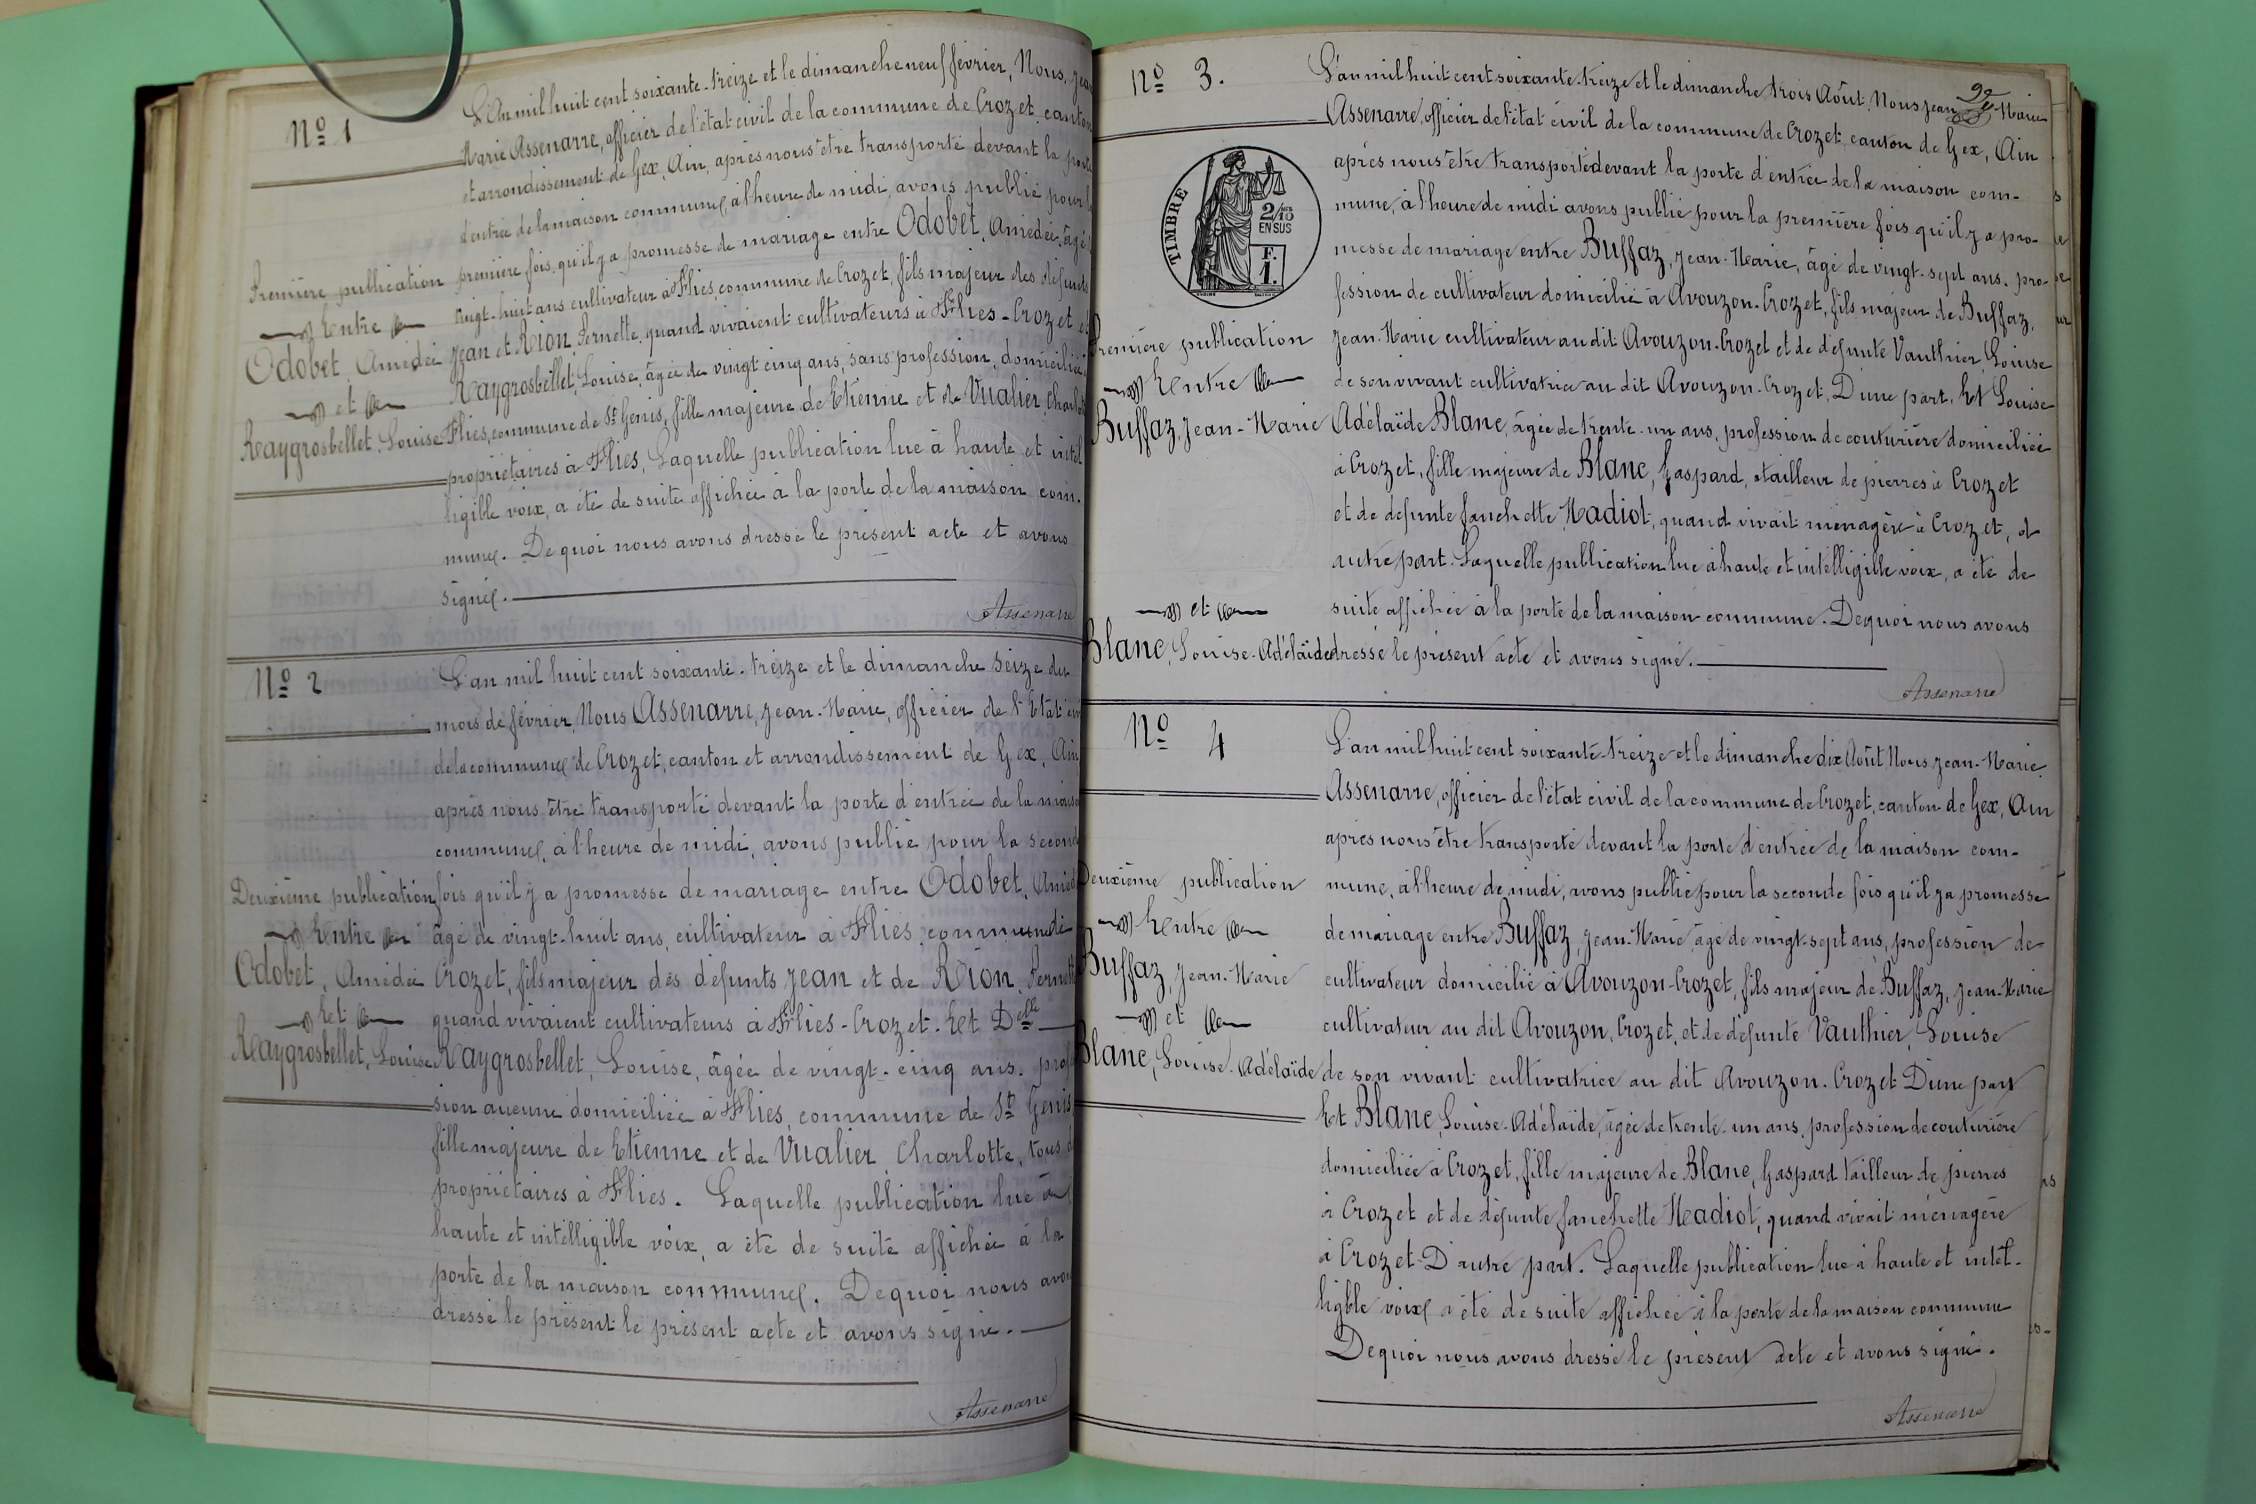 Nº 1
L'An mil huit cent soixante-treize et le dimanche neuf février, Nous, Jean
Marie Assenarre, officier de l'état civil de la commune de Crozet, canton
et arrondissement de Gex, Ain, après nous être transporté devant la porte
d'entrée de la maison commune, à l'heure de midi, avons publié pour la
première fois, qu'il y a promesse de mariage entre Odobet, Amédée, âgé
vingt-huit ans cultivateur à Flies, commune de Crozet, fils majeur des défunts
Jean et Rion, Pernette, quand vivaient cultivateurs à Flies-Crozet et
Raygrosbellet, Louise, âgée de vingt cinq ans, sans profession, domiciliée
Flies, commune de St Genis, fille majeure de Etienne et de Vualier, Charlotte
propriétaires à Flies. Laquelle publication lue à haute et intel
ligible voix, a été de suite affichée à la porte de la maison com.
mune. De quoi nous avons dressé le présent acte et avons
signé.
Assenarre
Première publication
Entre
Odobet, Amédée
et
Raygrosbellet, Louise
Nº 2
L'an mil huit cent soixante-treize et le dimanche seize du
mois de février, Nous Assenarre, Jean-Marie, officier de l'Etat civ
de la commune de Crozet, canton et arrondissement de Gex, Ain
après nous être transporté devant la porte d'entrée de la maiso
commune, à l'heure de midi, avons publié pour la seconde
fois qu'il y a promesse de mariage entre Odobet, Amédé
âgé de vingt-huit ans, cultivateur à Flies, commune de
Crozet, fils majeur des défunts Jean et de Rion, Pernette
quand vivaient cultivateurs à Flies-Crozet. Et Delle
Raygrosbellet, Louise, âgée de vingt-cinq ans. profes
sion aucune domiciliée à Flies, commune de St Genis
fille majeure de Etienne et de Vualier, Charlotte, tous d
propriétaires à Flies. Laquelle publication lue à
haute et intelligible voix, a été de suite affichée à la
porte de la maison commune. De quoi nous avons
dressé le présent le présent acte et avons signé.
Assenarre
Deuxième publication
Entre
Odobet, Amédée
et
Raygrosbellet, Louise
Nº 3.
L'an mil huit cent soixante-treize et le dimanche trois Août, Nous Jean-Marie
Assenarre, officier de l'état civil de la commune de Crozet, canton de Gex, Ain
après nous être transporté devant la porte d'entrée de la maison com-
mune, à l'heure de midi avons publié pour la première fois qu'il y a pro-
messe de mariage entre Buffaz, Jean-Marie, âgé de vingt-sept ans. pro-
fession de cultivateur domicilié à Avouzon-Crozet, fils majeur de Buffaz,
Jean-Marie cultivateur au dit Avouzon-Crozet et de défunte Vauthier, Louise
de son vivant cultivatrice au dit Avouzon-Crozet, D'une part. Et Louise
Adélaïde Blanc, âgée de trente-un ans, profession de couturière domiciliée
à Crozet, fille majeure de Blanc, Gaspard, tailleur de pierres à Crozet
et de défunte Fanchette Madiot, quand vivait ménagère à Crozet, d'
autre part. Laquelle publication lue à haute et intelligible voix, a été de
suite affichée à la porte de la maison commune. De quoi nous avons
dressé le présent acte et avons signé.
Assenarre
TIMBRE
2/10 EN SUS
F.
1.
Première publication
Entre
Buffaz, Jean-Marie
et
Blanc, Louise-Adélaïde
Nº 4
L'an mil huit cent soixante-treize et le dimanche dix Août, Nous Jean-Marie
Assenarre, officier de l'état civil de la commune de Crozet, canton de Gex, Ain
après nous être transporté devant la porte d'entrée de la maison com-
mune, à l'heure de midi, avons publié pour la seconde fois qu'il y a promesse
de mariage entre Buffaz, Jean-Marie âgé de vingt-sept ans, profession de
cultivateur domicilié à Avouzon-Crozet, fils majeur de Buffaz, Jean-Marie
cultivateur au dit Avouzon, Crozet, et de défunte Vauthier, Louise
de son vivant cultivatrice au dit Avouzon. Crozet D'une part
Et Blanc, Louise-Adélaïde, âgée de trente-un ans, profession de couturière
domiciliée à Crozet, fille majeure de Blanc, Gaspard tailleur de pierres
à Crozet et de défunte Fanchette Madiot, quand vivait ménagère
à Crozet D'autre part. Laquelle publication lue à haute et intel-
ligble voix, a été de suite affichée à la porte de la maison commune
De quoi nous avons dressé le présent acte et avons signé.
Assenarre
Deuxième publication
Entre
Buffaz, Jean-Marie
et
Blanc, Louise-Adélaïde